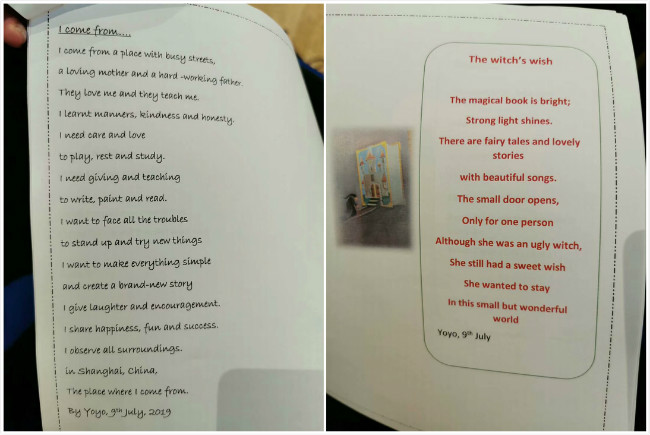 I come from.....
I come from a place with busy streets,
a loving mother and a hard -working father.
They love me and they teach me.
I learnt manners, kindness and honesty.
I need care and love
to play, rest and study.
I need giving and teaching
to write, paint and read.
I want to face all the troubles
to stand up and try new things
I want to make everything simple
and create a brand-new story
I give laughter and encouragement.
I share happiness, fun and success.
I observe all surroundings.
in Shanghai, China,
The place where I come from.
By Yoyo, 9th July, 2019
The witch's wish
The magical book is bright;
Strong light shines.
There are fairy tales and lovely
stories
with beautiful songs.
The small door opens,
Only for one person
Although she was an ugly witch,
She still had a sweet wish
She wanted to stay
In this small but wonderful
world
Yoyo, 9th July